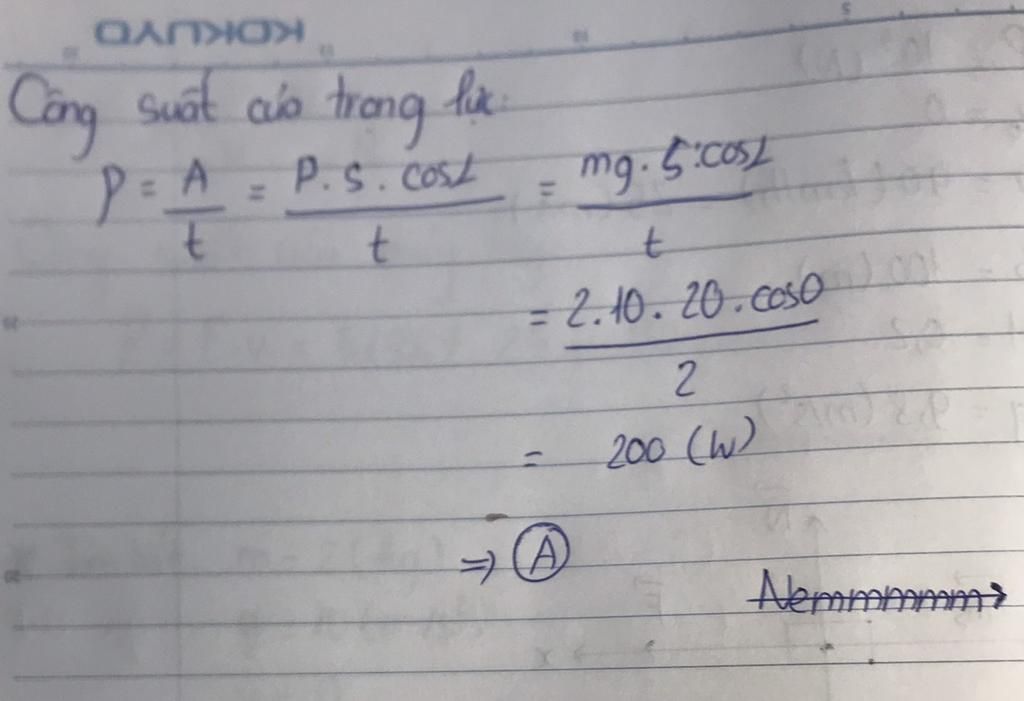 KOKUYO
Công suất của trọng lực:
P = A/t = P.s.cosα/t = mg.s.cosα/t
= 2.10.20.cos0/2
= 200 (W)
⇒ Ⓐ